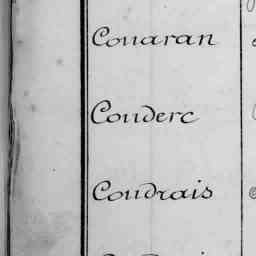 Conaran
Conderc
Condrais